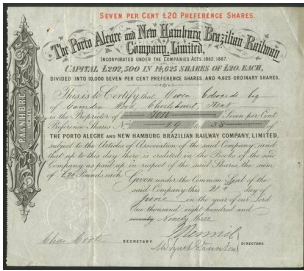 SEVEN PER CENT £20 PREFERENCE SHARES
The Porto Alegre and New Hamburg Brazilian Railway
Company, Limited,
INCORPORATED UNDER THE COMPANIES ACTS, 1862, 1867.
CAPITAL £292,500 IN 14,625 SHARES OF £20 EACH,
DIVIDED INTO 10,000 SEVEN PER CENT PREFERENCE SHARES, AND 4,625 ORDINARY SHARES.
This is to Certify that Owen Edwards
Camden Place, Chislehurst, Kent
is the Proprietor of Ten Seven per Cent
Preference Shares Nos
THE PORTO ALEGRE AND NEW HAMBURG BRAZILIAN RAILWAY COMPANY, LIMITED,
subject to the Articles of Association of the said Company and
that up to this day there is credited in the Books of the said
Company as paid up in respect of the said Shares the sum
of £20 Pounds each.
Given under the Common Seal of the
said Company this 21st day of
June in the year of our Lord
One thousand eight hundred and
Ninety three
SECRETARY
DIRECTORS